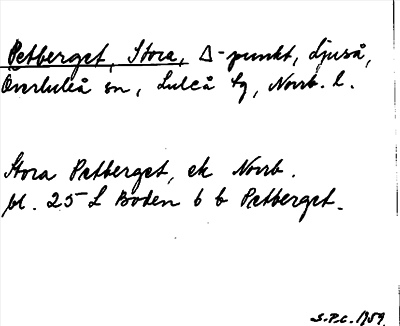 Petberget, Stora, Δ-punkt, Ljuså,
Överluleå sn, Luleå tg, Norrb. l.
Stora Petberget, ek Norrb.
bl. 25 L Boden 6 b Petberget.
S.P.C. 1959.